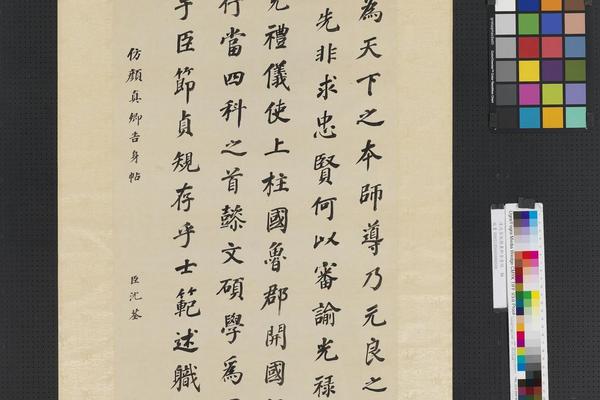 為天下之本師導乃元良之
先非求忠賢何以審諭光祿
充禮儀使上柱國魯郡開國
行當四科之首懿文碩學為
乎臣節貞規存乎士範述職
仿顏真卿告身帖
臣沈荃